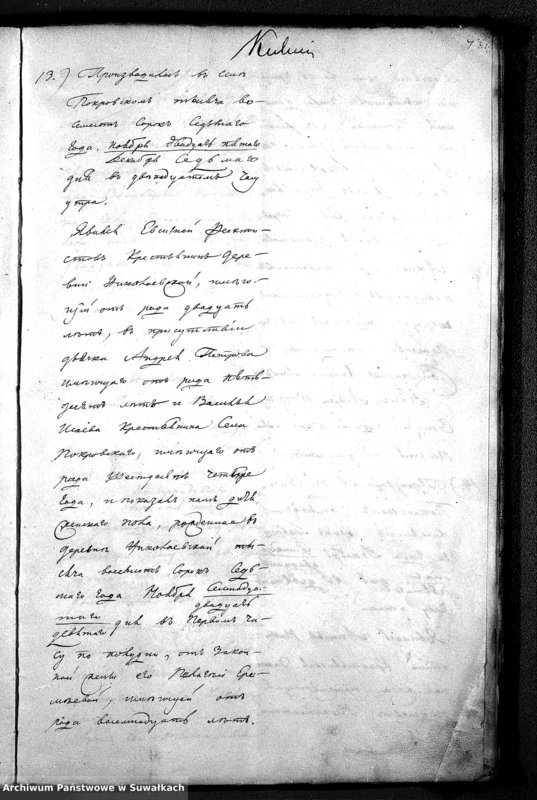 13.) Производилось в селе
Покровскомъ тысяча во-
семьсотъ Сорокъ Седьмаго
Года. Ноября двадцать пятаго
Декабря Седьмаго
дня въ двенадцатомъ часу
утра.
Явился Евсигней Феокти-
стовъ Крестьянинъ дере-
вни Николаевской, имею-
щій отъ рода двадцать
летъ, въ присутствіи
дьячка Андрея Петрова
имеющаго отъ рода пять-
десятъ летъ и Василья
Исаева Крестьянина Села
Покровскаго, имеющаго отъ
рода шестьдесятъ четыре
Года, и показалъ намъ дитя
женскаго пола, рожденная въ
деревне Николаевской ты-
сяча восемьсотъ Сорокъ Седь-
маго Года Ноября Семнадца-
таго двадцать
девятаго дня въ Первомъ ча-
су по полудни, отъ Закон-
ной жены его Пелагеи Ере-
меевой, имеющей отъ
рода восемнадцать летъ.
Archiwum Państwowe w Suwałkach